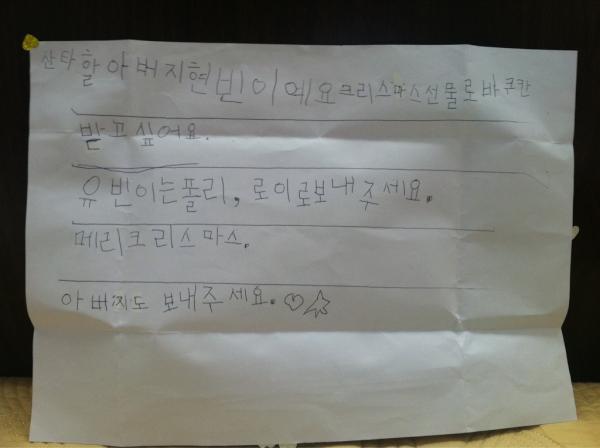 산타할아버지현빈이에요크리스마스선물로바쿠칸
받고싶어요.
유빈이는폴리, 로이로보내주세요.
메리크리스마스.
아버지도 보내주세요.♡☆